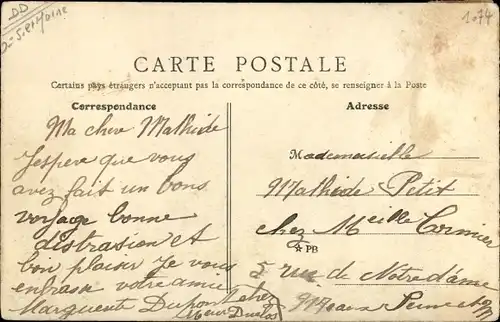 DD
1074
CARTE POSTALE
Certains pays étrangers n'acceptant pas la correspondance de ce côté, se renseigner à la Poste
Correspondance
Adresse
Ma cher Mathide
Jespere que vous
avez fait un bons
voyage bonne
distrasion et
bon plaisir Je vous
enbrasse votre amie
Marguerite Dupont
Mademoiselle
Mathide Petit
chez Meille Cormier
☆ PB
5 rue de Notre dame
Seine et